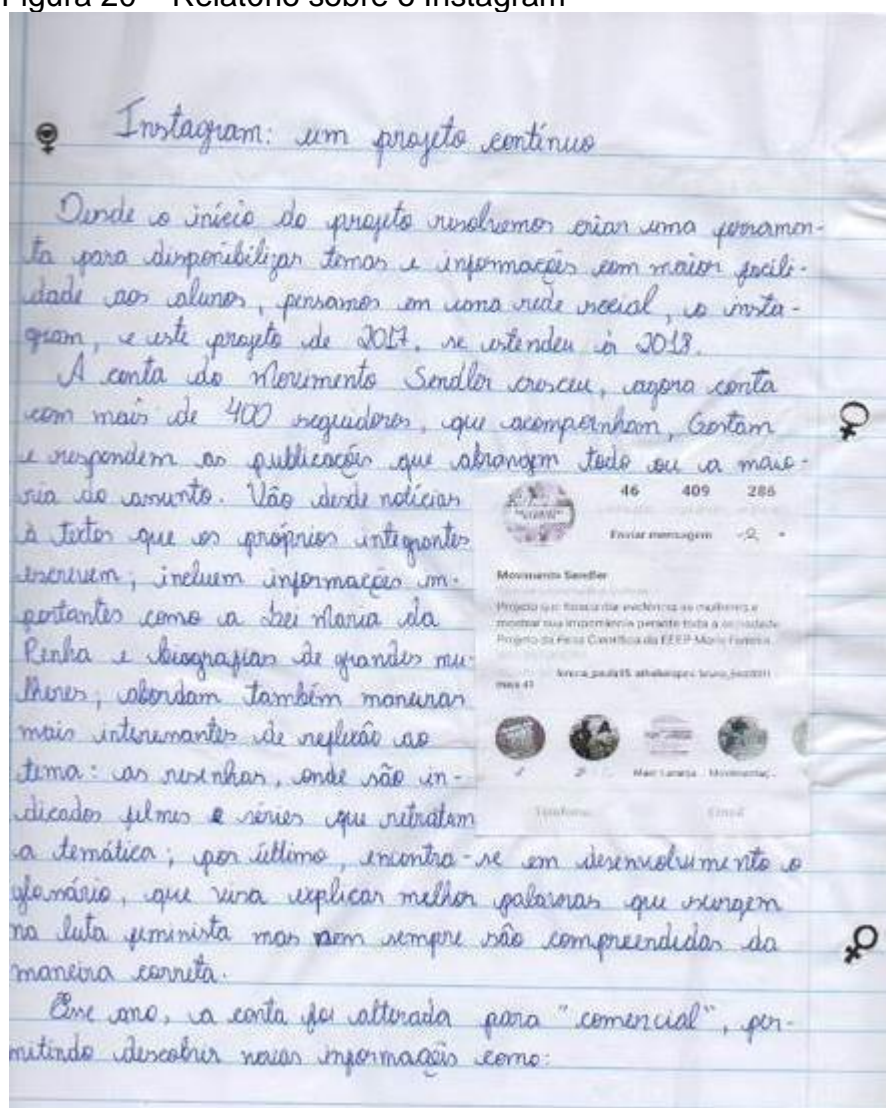 Figura 20 – Relatório sobre o Instagram
Instagram: um projeto contínuo
Desde o início do projeto resolvemos criar uma ferramen-
ta para disponibilizar temas e informações com maior facili-
dade aos alunos, pensamos em uma rede social, o insta-
gram, e este projeto de 2017, se estendeu à 2018.
A conta do Movimento Sendler cresceu, agora conta
com mais de 400 seguidores, que acompanham, Gostam
e respondem as publicações que abrangem todo ou a maio-
ria do assunto. Vão desde notícias
à textos que os próprios integrantes
escrevem; incluem informações im-
portantes como a Lei Maria da
Penha e biografias de grandes mu-
lheres; abordam também maneiras
mais interessantes de reflexão ao
tema: as resenhas, onde são in-
dicados filmes e séries que retratam
a temática; por último, encontra-se em desenvolvimento o
glossário, que visa explicar melhor palavras que surgem
na luta feminista mas nem sempre são compreendidas da
maneira correta.
Esse ano, a conta foi alterada para "comercial", per-
mitindo descobrir novas informações como:
46 409 286
Enviar mensagem
Movimento Sendler
Projeto que busca dar evidência as mulheres e
mostrar sua importância perante toda a sociedade
Projeto da Feira Científica da EEEP Mário
mais 41
Telefone Email